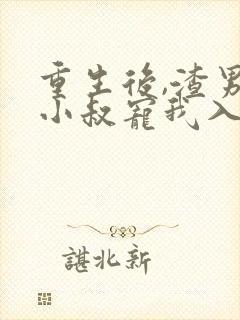 重生後,渣男
小叔寵我入
諶北新